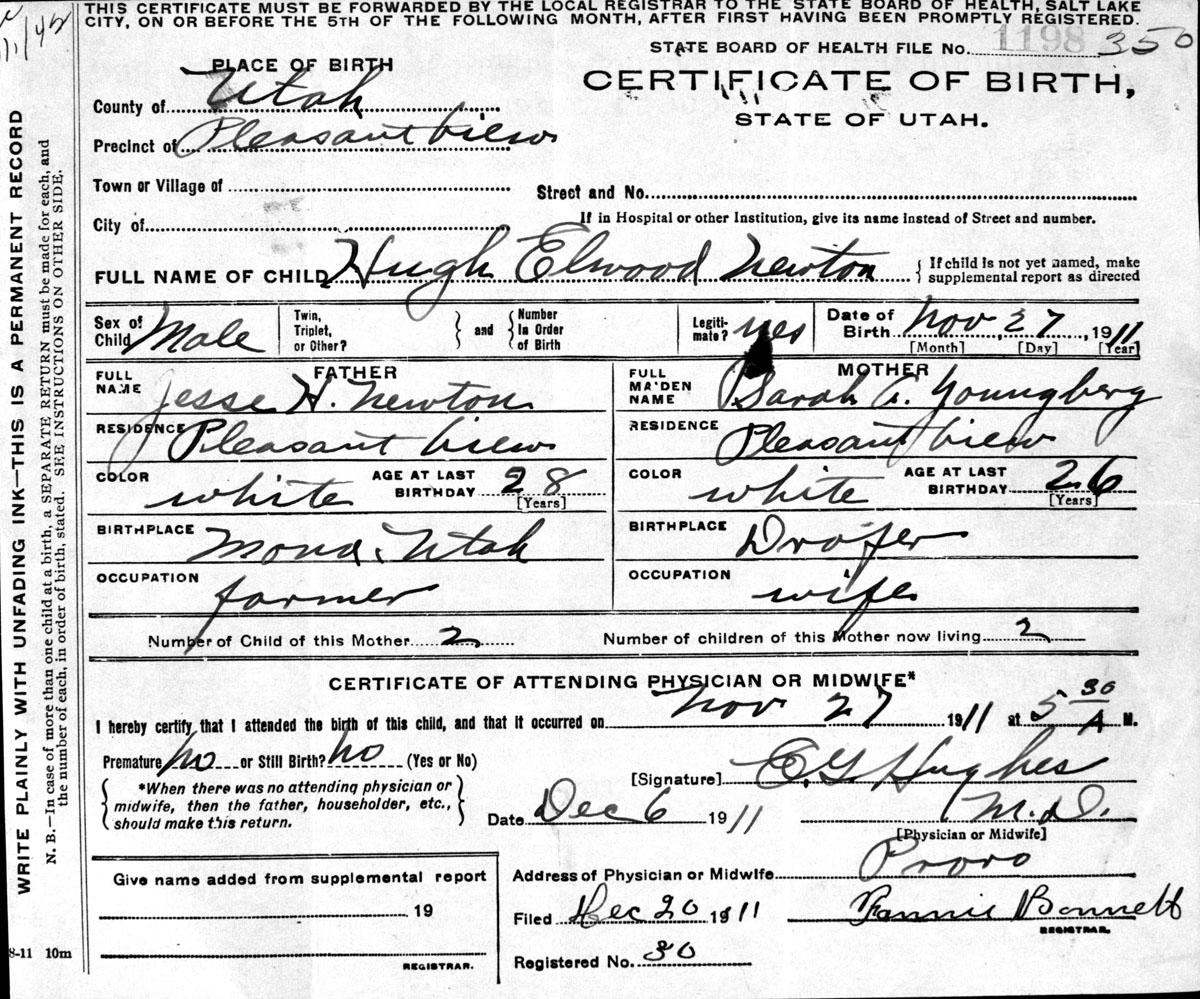 THIS CERTIFICATE MUST BE FORWARDED BY THE LOCAL REGISTRAR TO THE STATE BOARD OF HEALTH, SALT LAKE
CITY, ON OR BEFORE THE 5TH OF THE FOLLOWING MONTH, AFTER FIRST HAVING BEEN PROMPTLY REGISTERED.
STATE BOARD OF HEALTH FILE No. 1198 350
PLACE OF BIRTH
CERTIFICATE OF BIRTH,
STATE OF UTAH.
County of Utah
Precinct of Pleasant View
Town or Village of
Street and No.
City of
If in Hospital or other Institution, give its name instead of Street and number.
FULL NAME OF CHILD Hugh Elwood Newton { If child is not yet named, make supplemental report as directed
Sex of Child Male Twin, Triplet, or Other? } and { Number In Order of Birth Legiti- mate? yes Date of Birth Nov 27, 1911
[Month] [Day] [Year]
FATHER MOTHER
FULL NAME Jesse H. Newton FULL MAIDEN NAME Sarah A. Youngberg
RESIDENCE Pleasant View RESIDENCE Pleasant View
COLOR white AGE AT LAST BIRTHDAY 28 [Years] COLOR white AGE AT LAST BIRTHDAY 26 [Years]
BIRTHPLACE Mona, Utah BIRTHPLACE Draper
OCCUPATION farmer OCCUPATION wife
Number of Child of this Mother 2 Number of children of this Mother now living 2
CERTIFICATE OF ATTENDING PHYSICIAN OR MIDWIFE*
I hereby certify that I attended the birth of this child, and that it occurred on Nov 27 1911 at 5 30 A M.
Premature No or Still Birth? No (Yes or No)
[Signature] E. G. Hughes
*When there was no attending physician or
midwife, then the father, householder, etc.,
should make this return.
Date Dec 6 1911 M.D.
[Physician or Midwife]
Address of Physician or Midwife Provo
Filed Dec 20 1911 Fannie Bonnett
REGISTRAR.
Registered No. 30
Give name added from supplemental report
19
REGISTRAR.
8-11 10m
WRITE PLAINLY WITH UNFADING INK—THIS IS A PERMANENT RECORD
N. B.—In case of more than one child at a birth, a SEPARATE RETURN must be made for each, and
the number of each, in order of birth, stated. SEE INSTRUCTIONS ON OTHER SIDE.